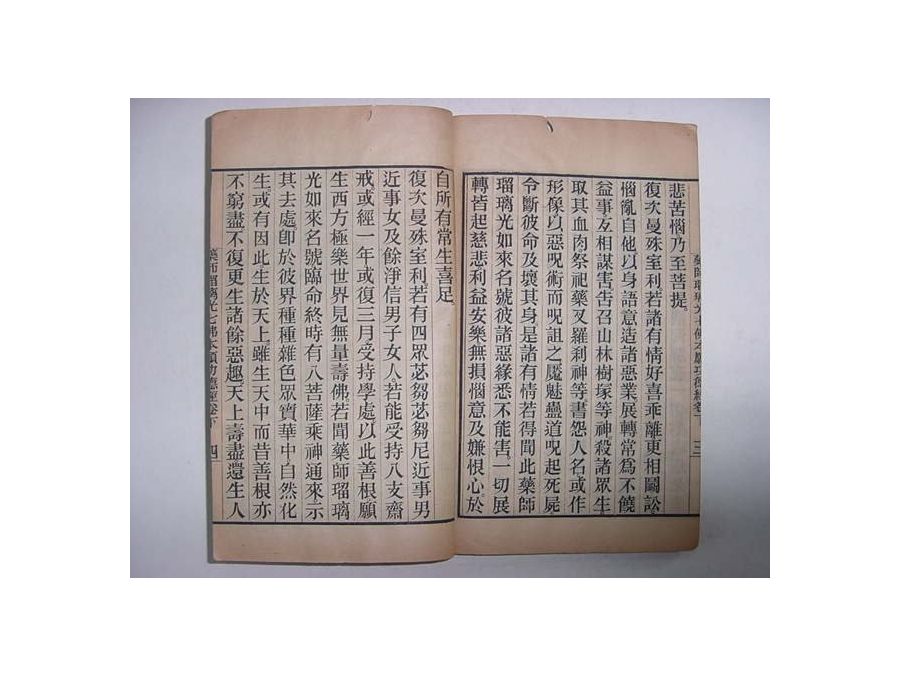 藥師瑠璃光七佛本願功德經卷下 三
悲苦惱乃至菩提。
復次曼殊室利若諸有情好喜乖離更相鬬訟
惱亂自他以身語意造諸惡業展轉常爲不饒
益事互相謀害告召山林樹塚等神殺諸眾生
取其血肉祭祀藥叉羅剎神等書怨人名或作
形像以惡呪術而呪詛之魘魅蠱道呪起死屍
令斷彼命及壞其身是諸有情若得聞此藥師
瑠璃光如來名號彼諸惡緣悉不能害一切展
轉皆起慈悲利益安樂無損惱意及嫌恨心於
自所有常生喜足。
復次曼殊室利若有四眾苾芻苾芻尼近事男
近事女及餘淨信男子女人若能受持八支齋
戒或經一年或復三月受持學處以此善根願
生西方極樂世界見無量壽佛若聞藥師瑠璃
光如來名號臨命終時有八菩薩乘神通來示
其去處卽於彼界種種雜色眾寶華中自然化
生或有因此生於天上雖生天中而昔善根亦
不窮盡不復更生諸餘惡趣天上壽盡還生人
藥師瑠璃光七佛本願功德經卷下 四